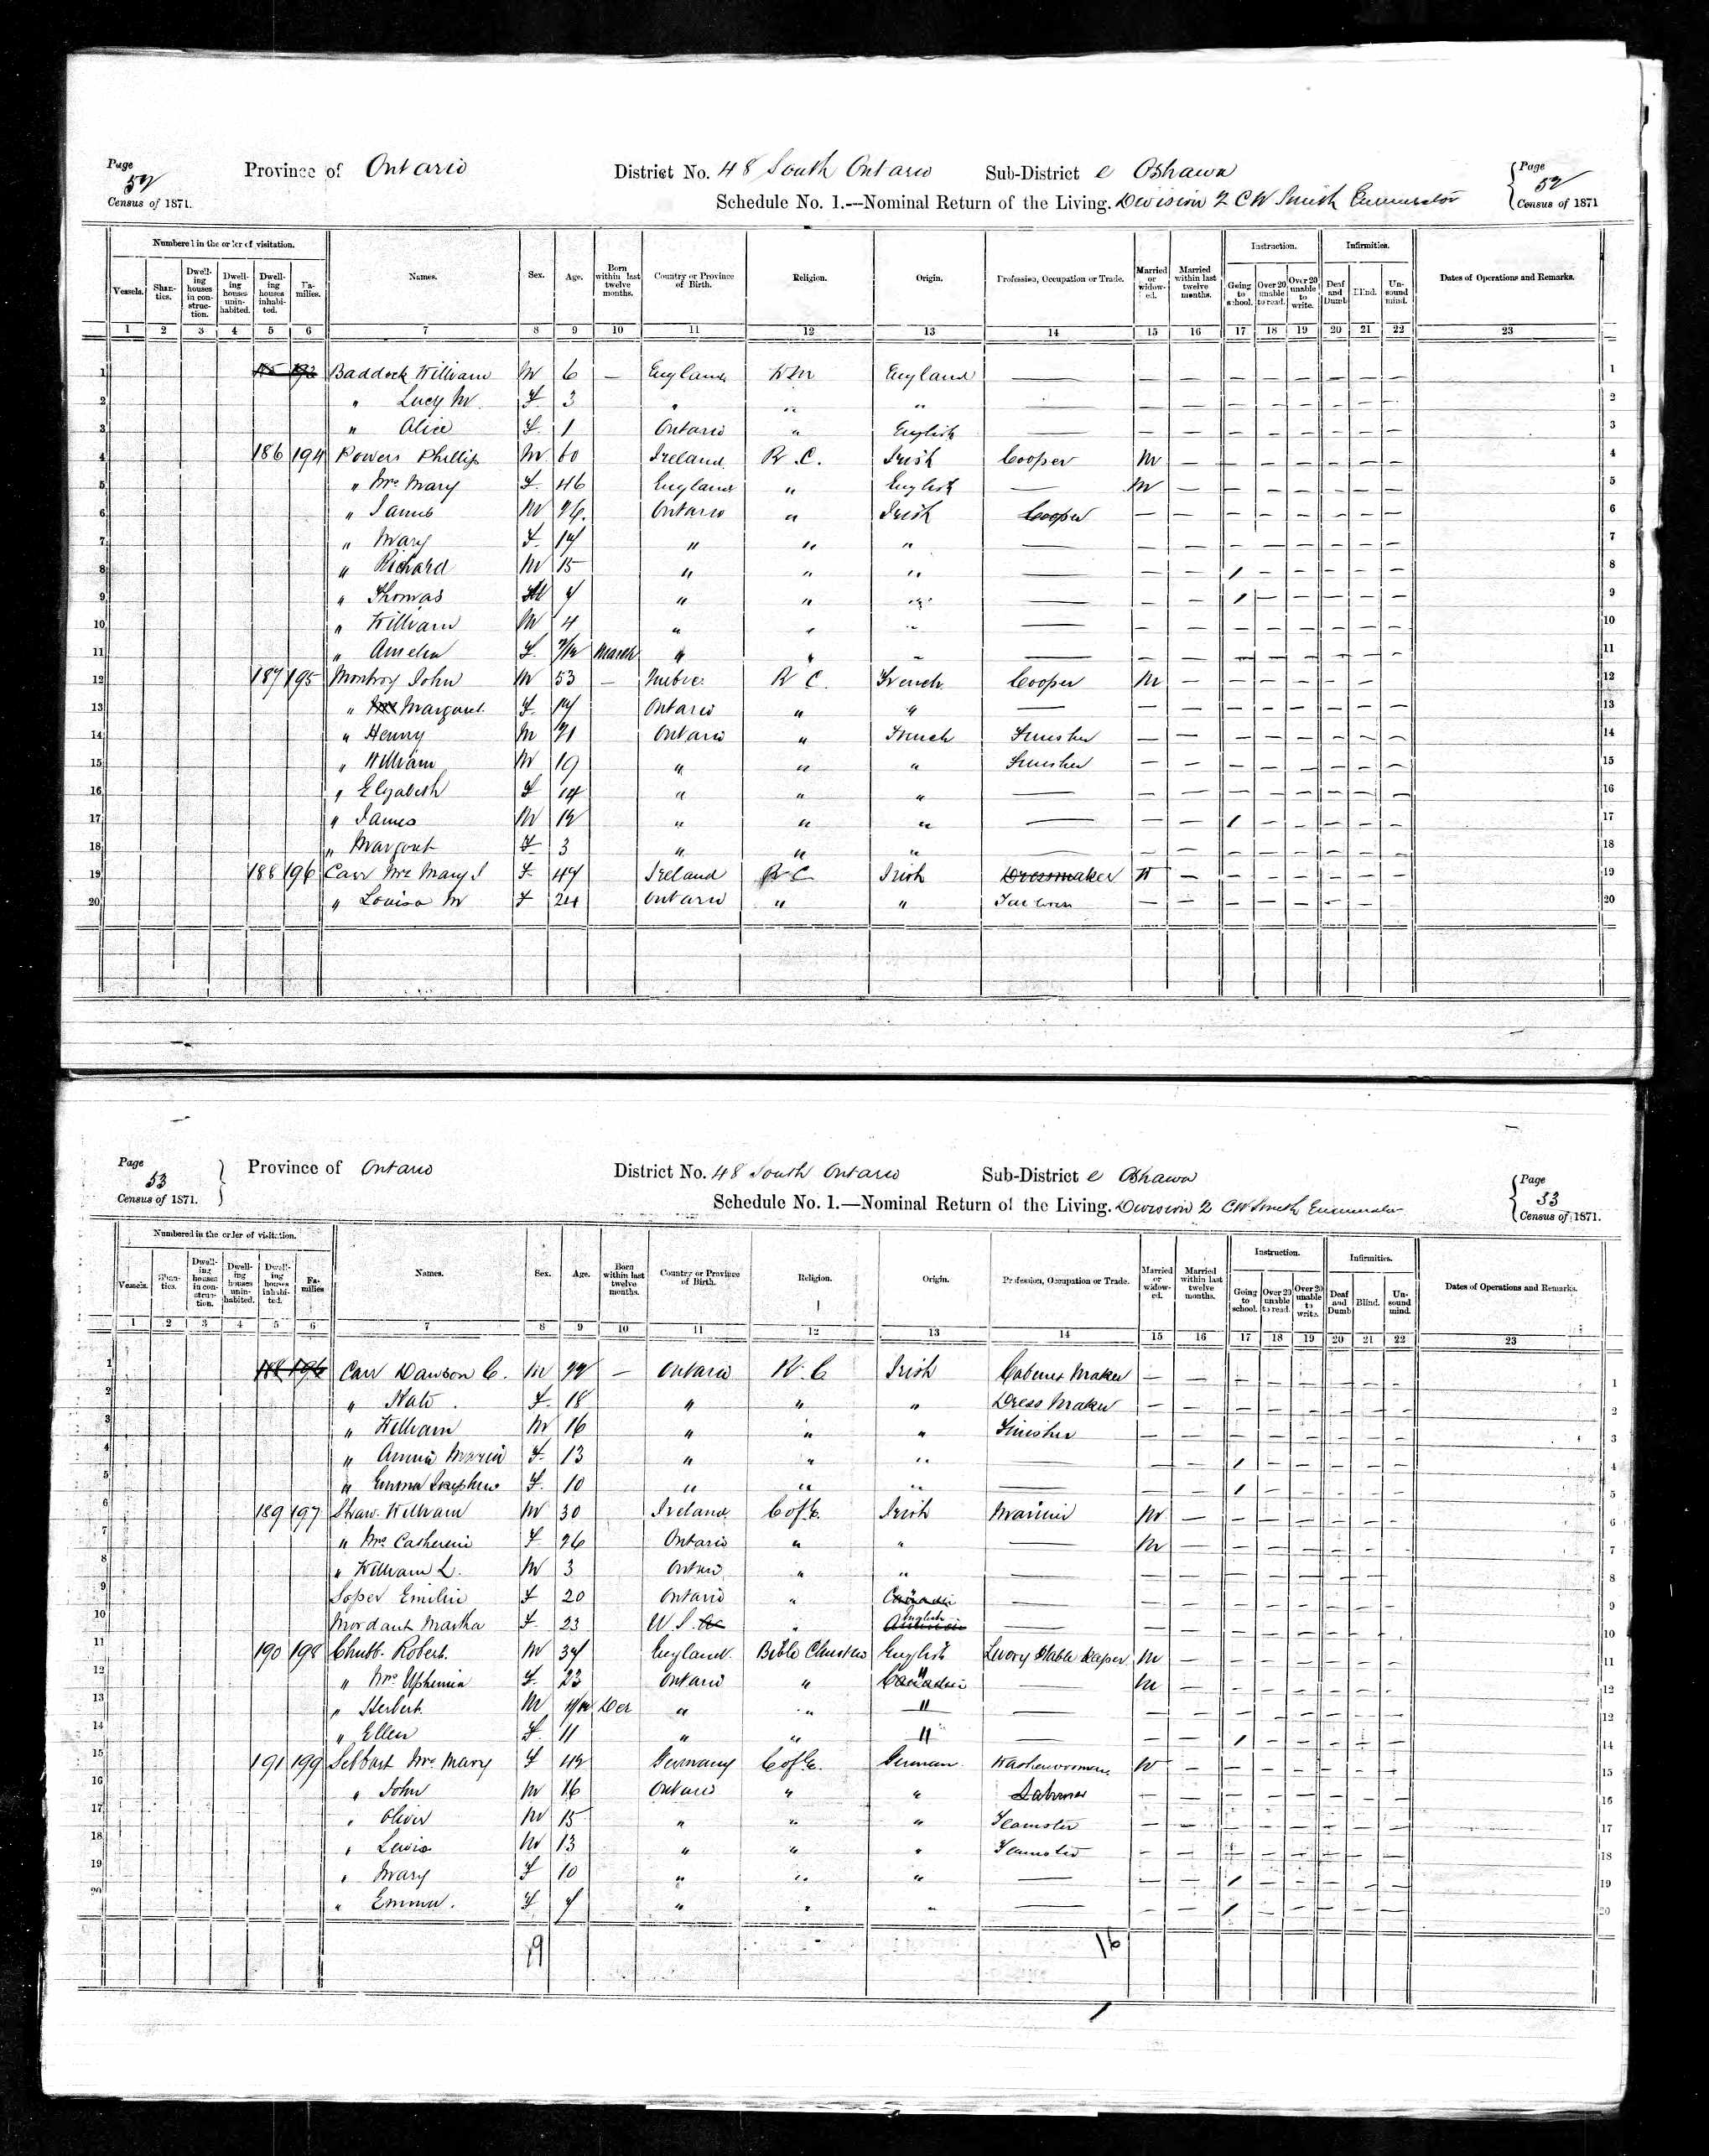 Page
52
Census of 1871.
Province of Ontario
District No. 48 South Ontario Sub-District e Oshawa
Schedule No. 1.---Nominal Return of the Living. Division 2 CW Smith Enumerator
Page
52
Census of 1871
Numbered in the order of visitation.
Vessels. Shanties. Dwelling houses in construction. Dwelling houses uninhabited. Dwelling houses inhabited. Families. Names. Sex. Age. Born within last twelve months. Country or Province of Birth. Religion. Origin. Profession, Occupation or Trade. Married or widowed. Married within last twelve months. Instruction. Going to school. Over 20 unable to read. Over 20 unable to write. Infirmities. Deaf and Dumb. Blind. Unsound mind. Dates of Operations and Remarks.
1 2 3 4 5 6 7 8 9 10 11 12 13 14 15 16 17 18 19 20 21 22 23
1 185 193 Baddock William M 6 — England WM England — — — — — — — — — 1
2 " Lucy M. F 3 " " " — — — — — — — — 2
3 " Alice F 1 Ontario " English — — — — — — — — — 3
4 186 194 Powers Phillip M 60 Ireland R C. Irish Cooper M — — — — — — — 4
5 " Mrs Mary F 46 England " English — M — — — — — — — 5
6 " James M 26 Ontario " Irish Cooper — — — — — — — — 6
7 " Mary F 17 " " " — — — — — — — — — 7
8 " Richard M 15 " " " — — — / — — — — — 8
9 " Thomas M 7 " " " — — — / — — — — — 9
10 " William M 4 " " " — — — — — — — — — 10
11 " Amelia F /12 March " " " — — — — — — — — — 11
12 187 195 Montroy John M 53 — Quebec R C. French Cooper M — — — — — — — 12
13 " Margaret F Ontario " " — — — — — — — — — 13
14 " Henry M 21 Ontario " French Finisher — — — — — — — — 14
15 " William M 19 " " " Finisher — — — — — — — — 15
16 " Elizabeth F 14 " " " — — — — — — — — — 16
17 " James M 12 " " " — — — / — — — — — 17
18 " Margaret F 3 " " " — — — — — — — — — 18
19 188 196 Carr Mrs Mary J F 47 Ireland R C Irish Dressmaker W — — — — — — — 19
20 " Louisa M F 24 Ontario " " — — — — — — — 20
Page
53
Census of 1871.
Province of Ontario
District No. 48 South Ontario Sub-District e Oshawa
Schedule No. 1.—Nominal Return of the Living. Division 2 CW Smith Enumerator
Page
53
Census of 1871.
Numbered in the order of visitation.
Vessels. Shanties. Dwelling houses in construction. Dwelling houses uninhabited. Dwelling houses inhabited. Families Names. Sex. Age. Born within last twelve months. Country or Province of Birth. Religion. Origin. Profession, Occupation or Trade. Married or widowed. Married within last twelve months. Instruction. Going to school. Over 20 unable to read. Over 20 unable to write. Infirmities. Deaf and Dumb Blind. Unsound mind. Dates of Operations and Remarks.
1 2 3 4 5 6 7 8 9 10 11 12 13 14 15 16 17 18 19 20 21 22 23
1 188 196 Carr Dawson C. M 22 — Ontario R. C Irish Cabinet Maker — — — — — — — — 1
2 " Kate F 18 " " " Dress Maker — — — — — — — — 2
3 " William M 16 " " " Finisher — — — — — — — — 3
4 " Annie Maria F 13 " " " — — — / — — — — — 4
5 " Emma Josephine F 10 " " " — — — / — — — — — 5
6 189 197 Straw William M 30 Ireland C of E. Irish M — — — — — — — 6
7 " Mrs Catherine F 26 Ontario " " — M — — — — — — — 7
8 " William L. M 3 Ontario " " — — — — — — — — — 8
9 Soper Emilie F 20 Ontario " Canadian — — — — — — — — — 9
10 Mordaut Martha F 23 U S " English — — — — — — — — — 10
11 190 198 Chubb Robert M 34 England Bible Christian English Livery Stable Keeper M — — — — — — — 11
12 " Mrs Uphemia F 23 Ontario " Canadian — M — — — — — — — 12
13 " Herbert M /12 Dec " " " — — — — — — — — — 12
14 " Ellen F 11 " " " — — — / — — — — — 14
15 191 199 Selbart Mrs Mary F 42 Germany C of E. German Washerwoman W — — — — — — — 15
16 " John M 16 Ontario " " Labourer — — — — — — — — 16
17 " Oliver M 15 " " " Teamster — — — — — — — — 17
18 " Lewis M 13 " " " Teamster — — — — — — — — 18
19 " Mary F 10 " " " — — — / — — — — — 19
20 " Emma. F 7 " " " — — — / — — — — — 20
19 16